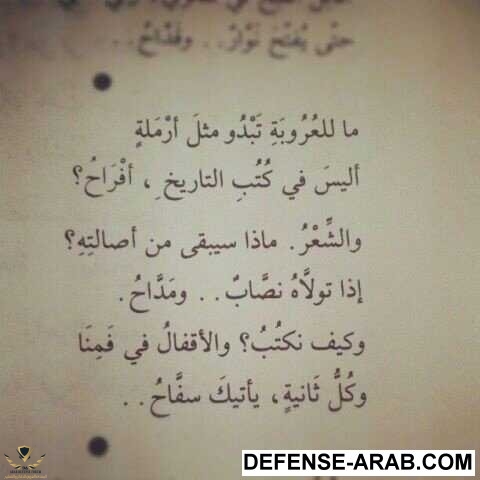 حتى يُفتِّحَ نَوَّارٌ.. وقَدَّاحُ..
ما للعُرُوبَةِ تَبْدُو مثلَ أرْمَلةٍ
أليسَ في كُتُبِ التاريخِ، أفْرَاحُ؟
والشِّعْرُ. ماذا سيبقى من أصالتِهِ؟
إذا تولاَّهُ نصَّابٌ.. ومَدَّاحُ.
وكيف نكتُبُ؟ والأقفالُ في فَمِنَا
وكُلُّ ثَانيةٍ، يأتيكَ سفَّاحُ..
DEFENSE-ARAB.COM